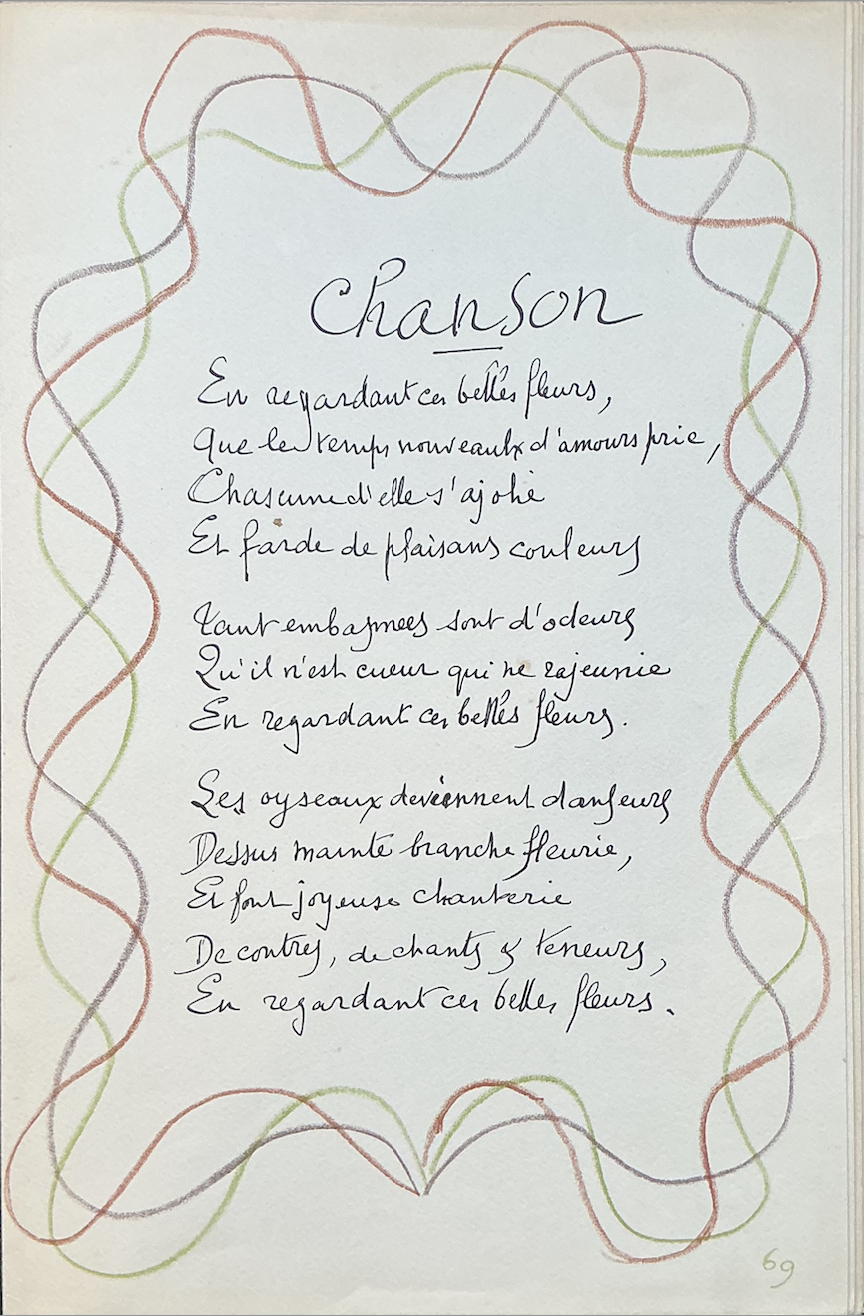 Chanson
En regardant ces belles fleurs,
Que le temps nouveaulx d'amours prie,
Chascune d'elle s'ajolie
Et farde de plaisans couleurs
Tant embasmees sont d'odeurs
Qu'il n'est cueur qui ne rajeunie
En regardant ces belles fleurs.
Les oyseaux deviennent danseurs
Dessus mainte branche fleurie,
Et font joyeuse chanterie
De contres, de chants & teneurs,
En regardant ces belles fleurs.
69